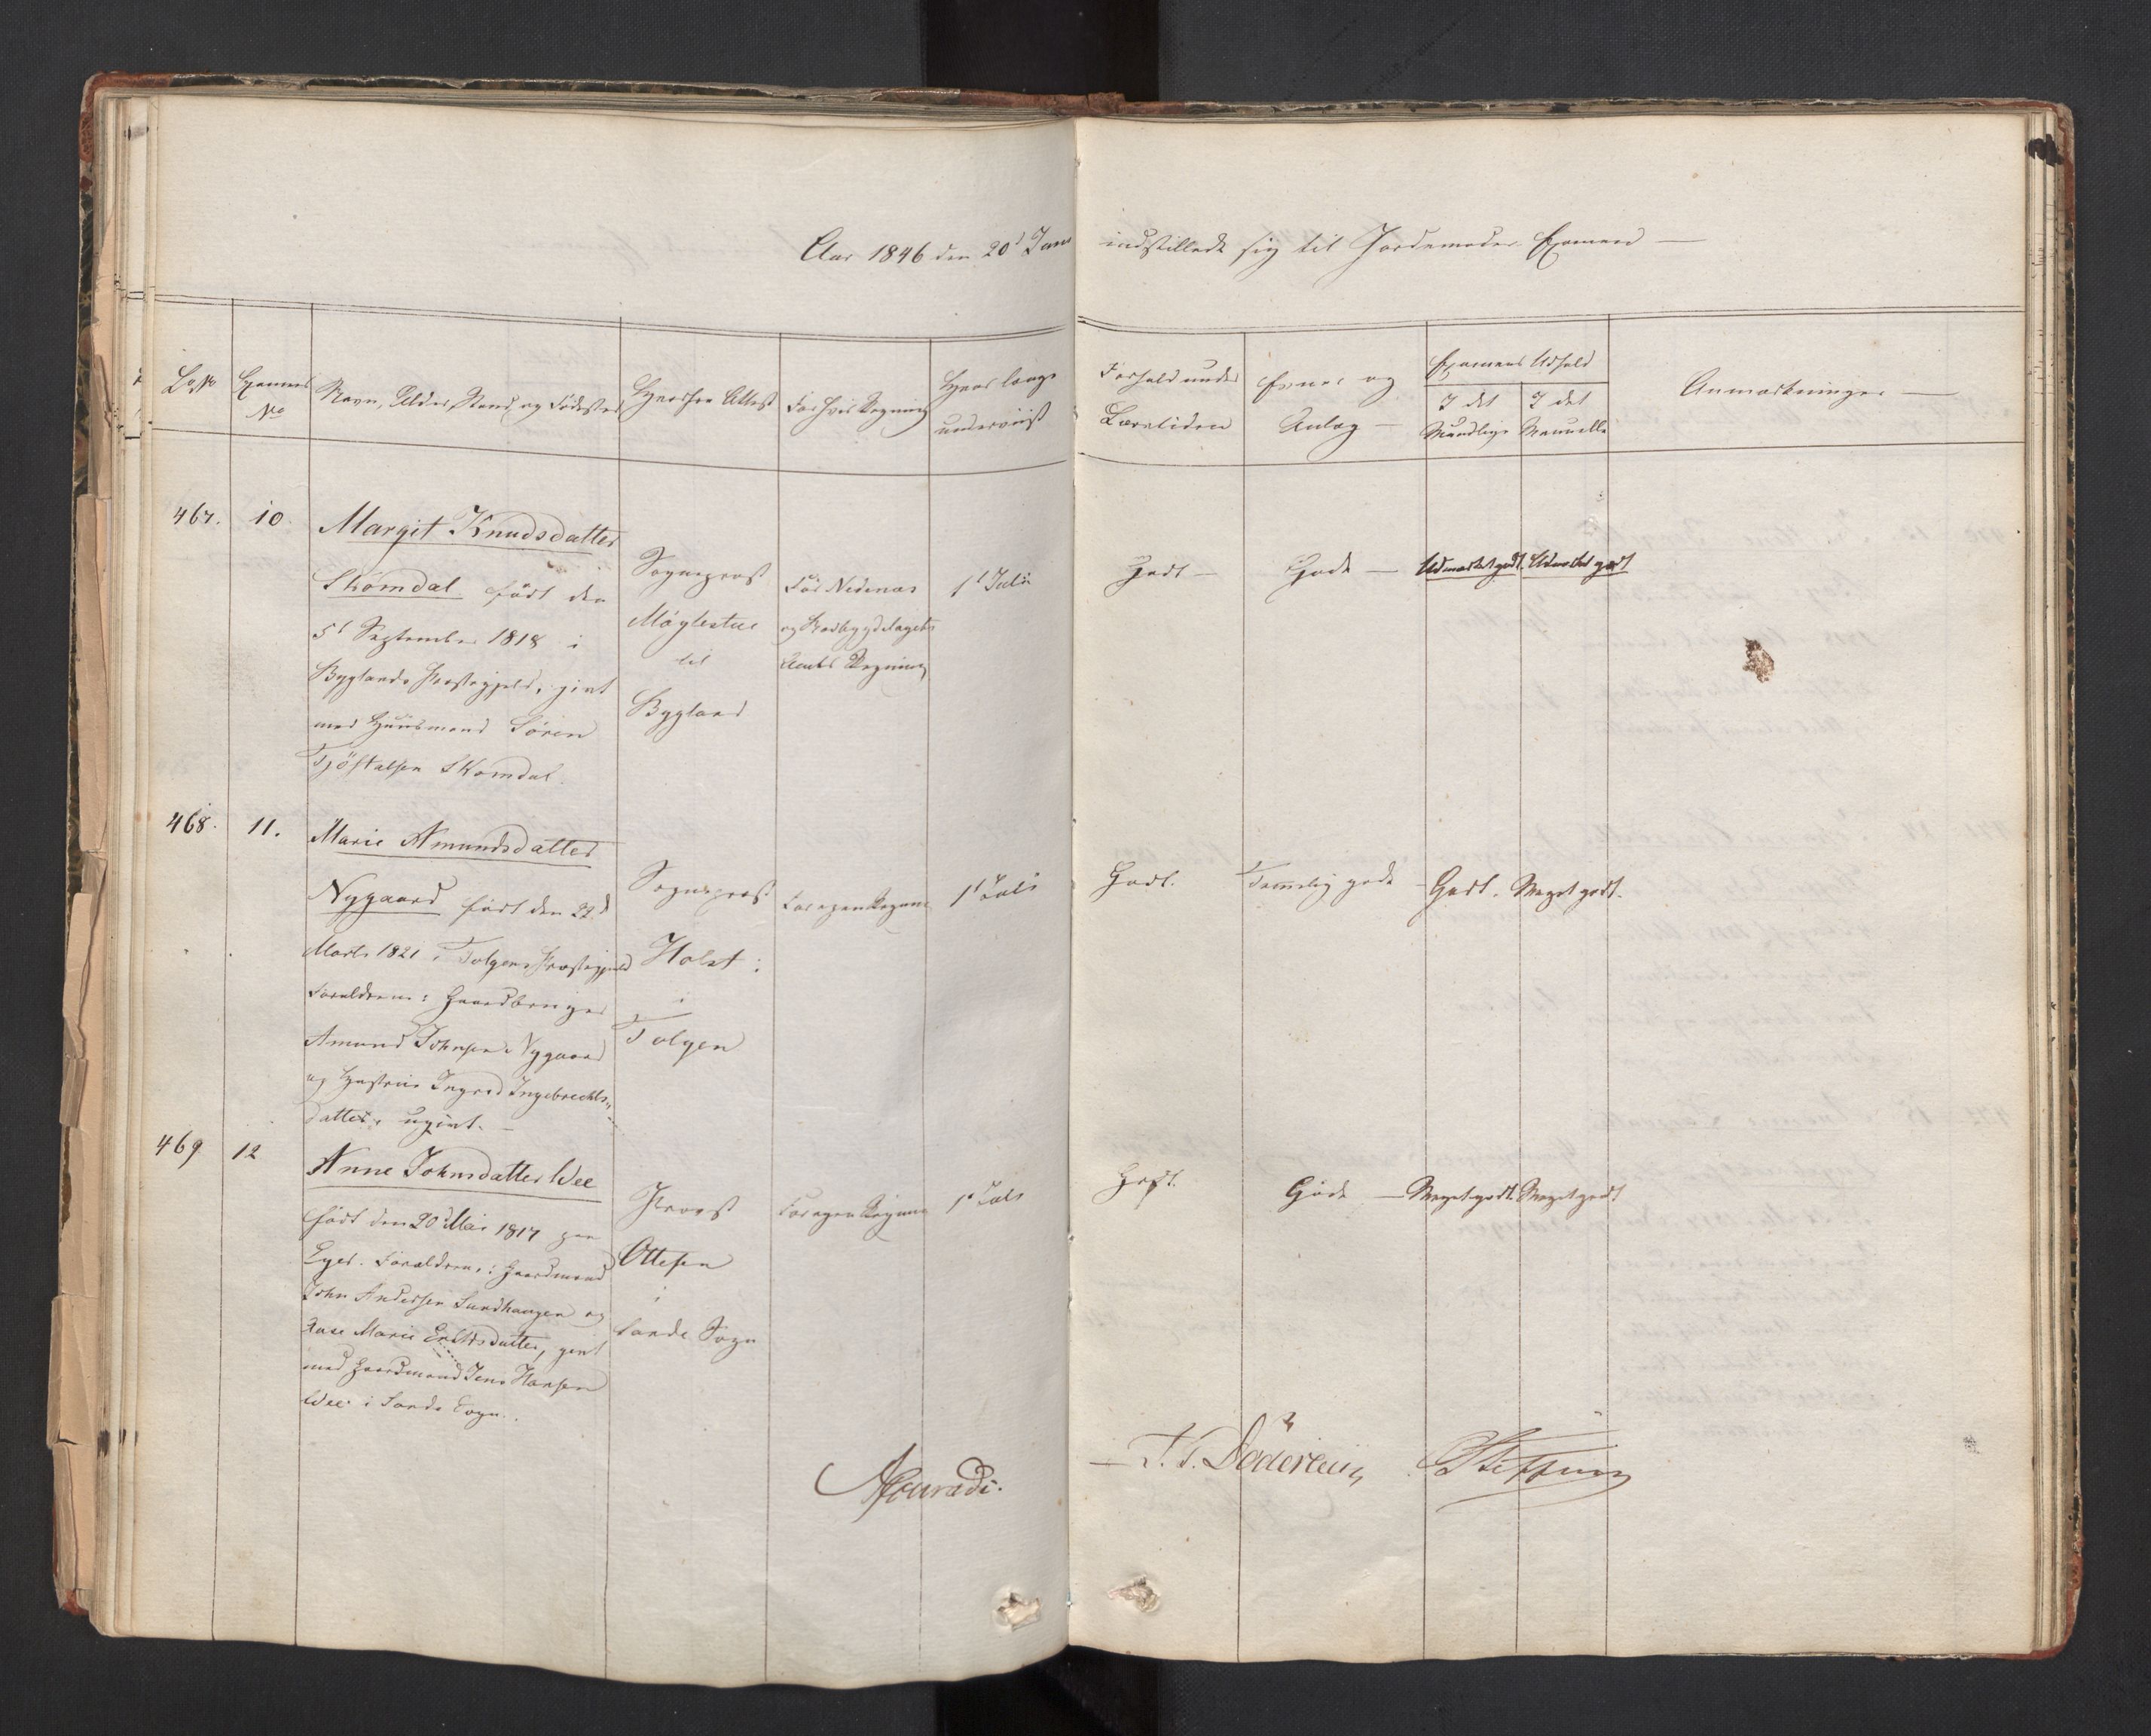 Aar 1846 den 20d Juni indstillede sig til Jordemoder Examen —
Lb. No
Examens No
Navn, Alder, Stand og Fødested
Hvorfra Attest
For hvis Regning
Hvor længe underviist
Forhold under Læretiden
Evner og Anlæg —
Examens Udfald
I det Mundtlige
I det Manuelle
Anmærkninger —
467. 10
Margit Knudsdatter
Skomdal født den
5t September 1818 i
Byglands Præstegjeld, givt
med Huusmand Sören
Tjöstalsen Skomdal.
Sogneprest
Møglestue
til
Bygland
For Nedenæs
og Raabygdelagets
Amts Regning
1t Juli
Godt —
Gode —
Udmærket godt.
Udmærket godt
468. 11.
Marie Amundsdatter
Nygaard født den 22d
Marts 1821 i Tolgens Præstegjeld
Forældrene: Gaardbruger
Amund Johnsen Nygaard
og Hustrue Ingred Ingebrechts-
datter, ugivt. —
Sogneprest
Holst
i
Tolgen
For egen Regning
1t Juli
Godt.
Temmelig gode —
Godt.
Meget godt.
469 12
Anne Johnsdatter Wee
født den 20d Mai 1817 paa
Eger. Forældrene: Gaardmand
John Andersen Sundhaugen og
Aase Marie Eriksdatter, givt
med Gaardmand Jens Hansen
Wee i Sande Sogn.
Provst
Ottesen
i
Sande Sogn
For egen Regning
1t Juli
Godt.
Gode —
Meget godt.
Meget godt
AConradi.